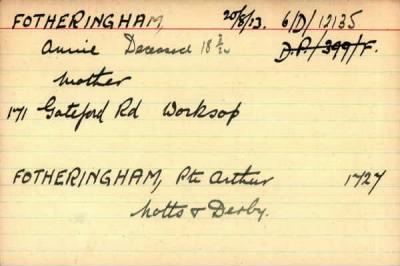 FOTHERINGHAM, 20/8/13. 6/D/12135
Annie Deceased 18 D.P./399/F.
Mother
171 Gateford Rd Worksop
FOTHERINGHAM, Pte Arthur 1727
Notts & Derby.